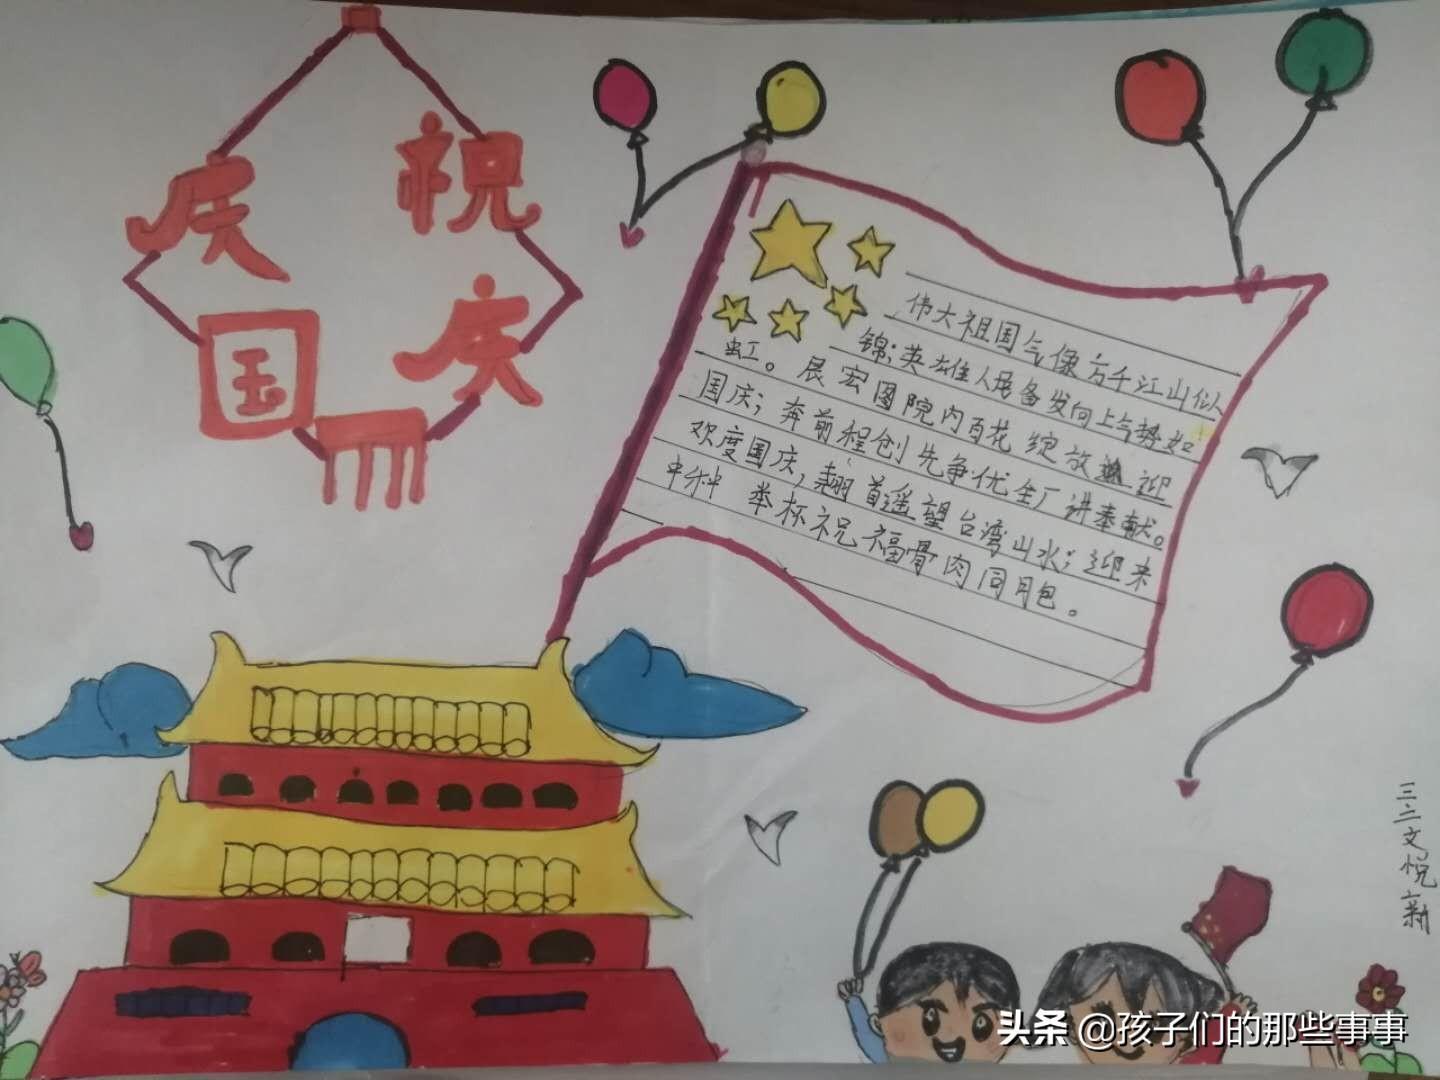 庆祝
国庆
伟大祖国气像万千江山似
锦;英雄人塔备发向上气势如
虹。展宏图院内百花绽放迎
国庆;奔前程创先争优全厂讲奉献。
欢度国庆,翘首遥望台湾山水;迎来
中秋 举杯祝福骨肉同月包。
三二文悦新
头条@孩子们的那些事事